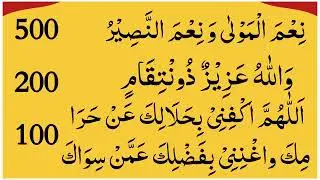 500 نِعْمَ الْمَوْلٰى وَنِعْمَ النَّصِيْرُ
200 وَاللّٰهُ عَزِيْزٌ ذُونْتِقَامٍ
اَللّٰهُمَّ اكْفِنِيْ بِحَلَالِكَ عَنْ حَرَا
100 مِكَ وَاغْنِنِيْ بِفَضْلِكَ عَمَّنْ سِوَاكَ